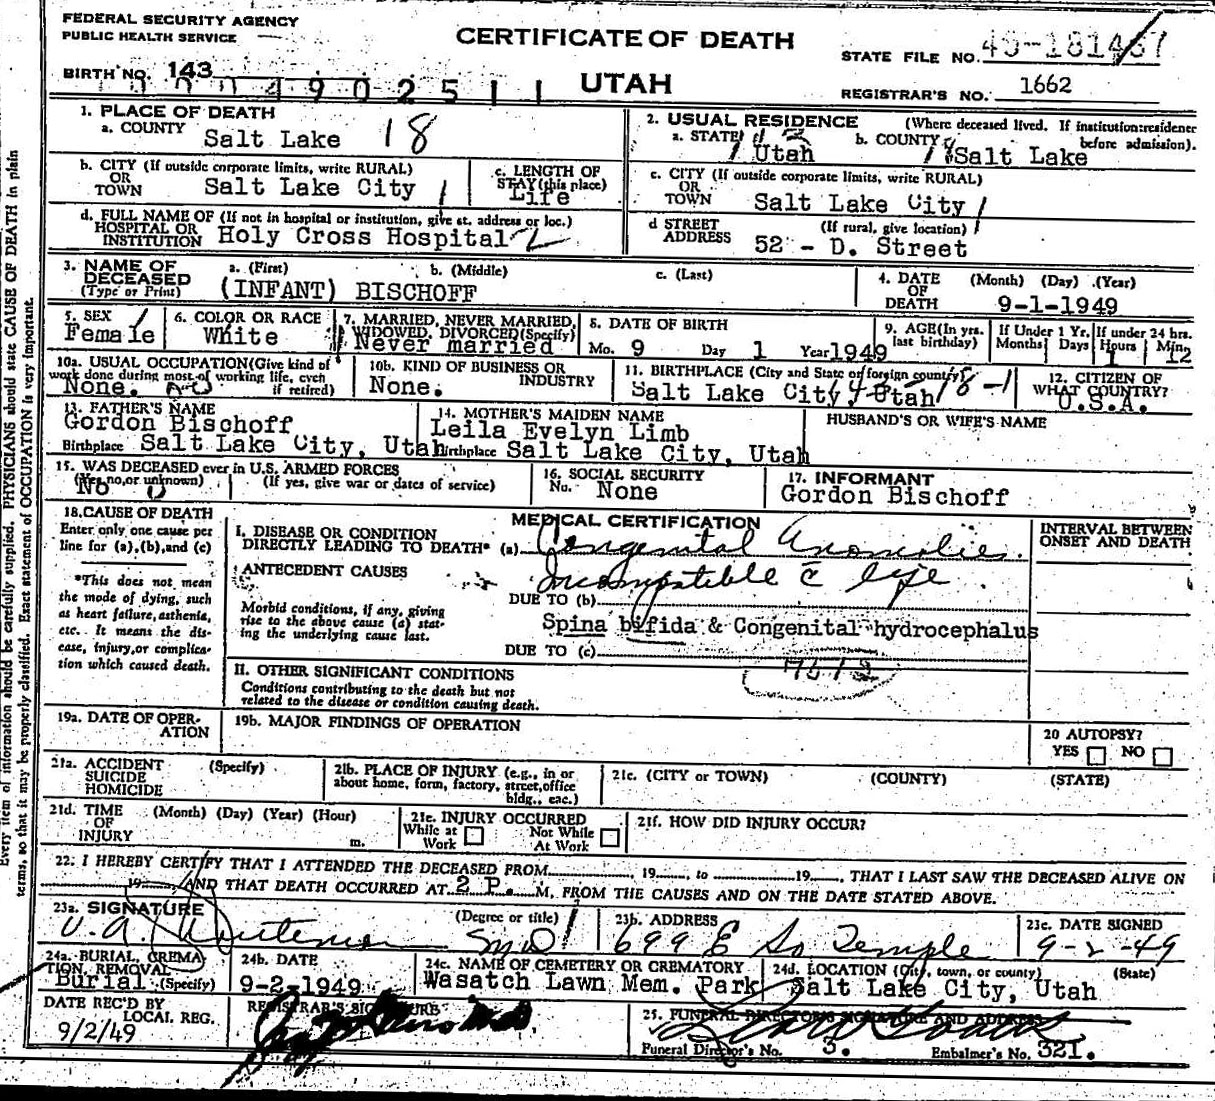 FEDERAL SECURITY AGENCY
PUBLIC HEALTH SERVICE
CERTIFICATE OF DEATH
UTAH
STATE FILE NO.
BIRTH NO. 143
REGISTRAR'S NO. 1662
1. PLACE OF DEATH
a. COUNTY Salt Lake 18
b. CITY (If outside corporate limits, write RURAL)
OR
TOWN Salt Lake City
c. LENGTH OF
STAY (this place)
Life
d. FULL NAME OF (If not in hospital or institution, give st. address or loc.)
HOSPITAL OR
INSTITUTION Holy Cross Hospital
2. USUAL RESIDENCE (Where deceased lived. If institution: residence
before admission).
a. STATE Utah b. COUNTY Salt Lake
c. CITY (If outside corporate limits, write RURAL)
OR
TOWN Salt Lake City
d STREET (If rural, give location)
ADDRESS 52 - D. Street
3. NAME OF
DECEASED
(Type or Print)
a. (First) b. (Middle) c. (Last)
(INFANT) BISCHOFF
4. DATE (Month) (Day) (Year)
OF
DEATH 9-1-1949
5. SEX
Female
6. COLOR OR RACE
White
7. MARRIED, NEVER MARRIED,
WIDOWED, DIVORCED (Specify)
Never married
8. DATE OF BIRTH
Mo. 9 Day 1 Year 1949
9. AGE (In yrs.
last birthday)
If Under 1 Yr.
Months Days
If under 24 hrs.
Hours Min.
1 12
10a. USUAL OCCUPATION (Give kind of
work done during most of working life, even
if retired)
None.
10b. KIND OF BUSINESS OR
INDUSTRY
None.
11. BIRTHPLACE (City and State or foreign country)
Salt Lake City, Utah
12. CITIZEN OF
WHAT COUNTRY?
U.S.A.
13. FATHER'S NAME
Gordon Bischoff
Birthplace Salt Lake City, Utah
14. MOTHER'S MAIDEN NAME
Leila Evelyn Limb
Birthplace Salt Lake City, Utah
HUSBAND'S OR WIFE'S NAME
15. WAS DECEASED ever in U.S. ARMED FORCES
(Yes, no, or unknown) (If yes, give war or dates of service)
No
16. SOCIAL SECURITY
No. None
17. INFORMANT
Gordon Bischoff
18. CAUSE OF DEATH
Enter only one cause per
line for (a), (b), and (c)
*This does not mean
the mode of dying, such
as heart failure, asthenia,
etc. It means the dis-
ease, injury, or complica-
tion which caused death.
MEDICAL CERTIFICATION
I. DISEASE OR CONDITION
DIRECTLY LEADING TO DEATH* (a) Congenital Anomalies
ANTECEDENT CAUSES
Incompatible c̄ life
DUE TO (b)
Morbid conditions, if any, giving
rise to the above cause (a) stat-
ing the underlying cause last.
Spina bifida & Congenital hydrocephalus
DUE TO (c)
II. OTHER SIGNIFICANT CONDITIONS
Conditions contributing to the death but not
related to the disease or condition causing death.
INTERVAL BETWEEN
ONSET AND DEATH
19a. DATE OF OPER-
ATION
19b. MAJOR FINDINGS OF OPERATION
20 AUTOPSY?
YES NO
21a. ACCIDENT (Specify)
SUICIDE
HOMICIDE
21b. PLACE OF INJURY (e.g., in or
about home, form, factory, street, office
bldg., eac.)
21c. (CITY or TOWN) (COUNTY) (STATE)
21d. TIME (Month) (Day) (Year) (Hour)
OF
INJURY m.
21e. INJURY OCCURRED
While at Work Not While At Work
21f. HOW DID INJURY OCCUR?
22. I HEREBY CERTIFY THAT I ATTENDED THE DECEASED FROM 19 to 19, THAT I LAST SAW THE DECEASED ALIVE ON
19 AND THAT DEATH OCCURRED AT 2 P. M, FROM THE CAUSES AND ON THE DATE STATED ABOVE.
23a. SIGNATURE (Degree or title)
23b. ADDRESS
699 E So Temple
23c. DATE SIGNED
9-2-49
24a. BURIAL, CREMA
TION, REMOVAL
Burial (Specify)
24b. DATE
9-2-1949
24c. NAME OF CEMETERY OR CREMATORY
Wasatch Lawn Mem. Park
24d. LOCATION (City, town, or county) (State)
Salt Lake City, Utah
DATE REC'D BY
LOCAL REG.
9/2/49
REGISTRAR'S SIGNATURE
25. FUNERAL DIRECTOR'S SIGNATURE AND ADDRESS
Funeral Director's No. 3. Embalmer's No. 321.
Every item of information should be carefully supplied. PHYSICIANS should state CAUSE OF DEATH in plain
terms, so that it may be properly classified. Exact statement of OCCUPATION is very important.